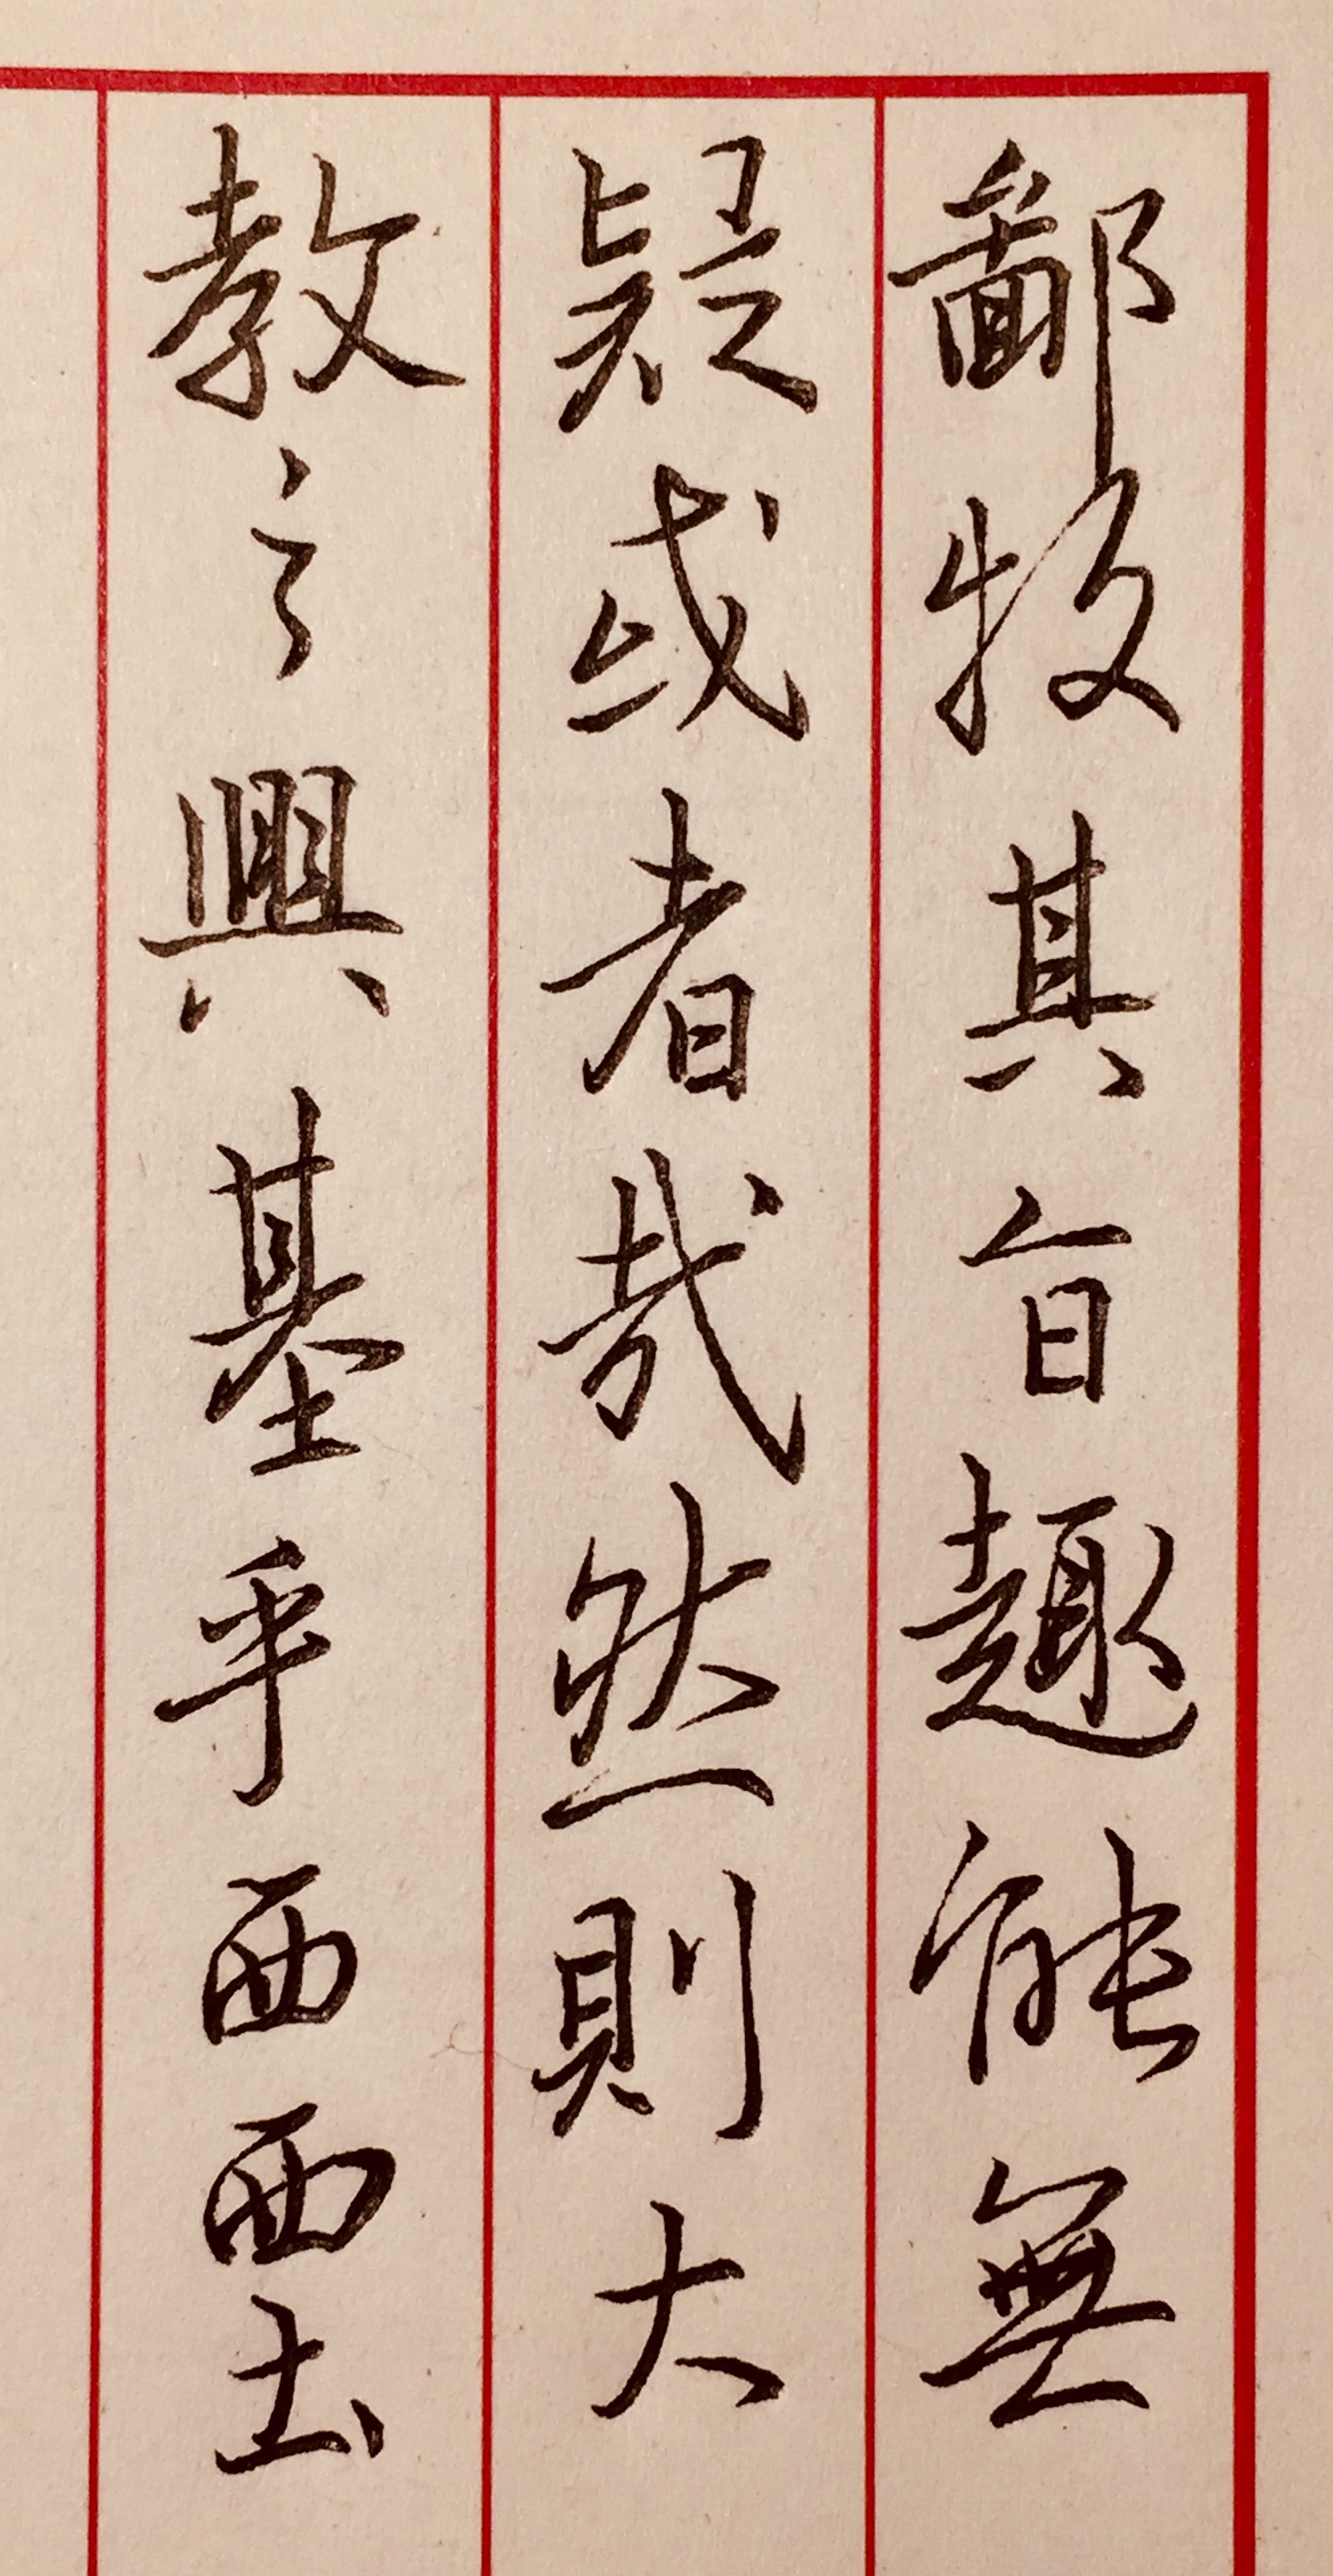 鄙投其旨趣能無
疑或者哉然則大
教之興基乎西西土